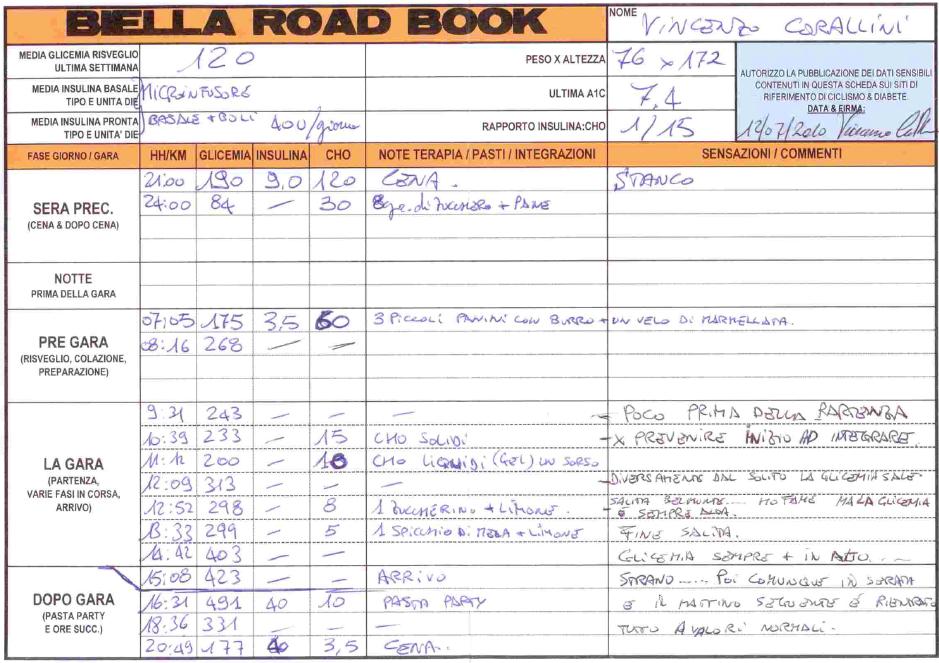 BIELLA ROAD BOOK
NOME VINCENZO CORALLINI
MEDIA GLICEMIA RISVEGLIO ULTIMA SETTIMANA 120 PESO X ALTEZZA 76 x 172
MEDIA INSULINA BASALE TIPO E UNITA DIE MICROINFUSORE ULTIMA A1C 7,4
MEDIA INSULINA PRONTA TIPO E UNITA' DIE BASALE + BOLI 40U/giorno RAPPORTO INSULINA:CHO 1/15
AUTORIZZO LA PUBBLICAZIONE DEI DATI SENSIBILI
CONTENUTI IN QUESTA SCHEDA SUI SITI DI
RIFERIMENTO DI CICLISMO & DIABETE.
DATA & FIRMA:
12/07/2010 Vincenzo
FASE GIORNO / GARA HH/KM GLICEMIA INSULINA CHO NOTE TERAPIA / PASTI / INTEGRAZIONI SENSAZIONI / COMMENTI
SERA PREC.
(CENA & DOPO CENA)
21:00 190 9,0 120 CENA. STANCO
24:00 84 — 30 di ZUCCHERO + PANE
NOTTE
PRIMA DELLA GARA
PRE GARA
(RISVEGLIO, COLAZIONE,
PREPARAZIONE)
07:05 175 3,5 60 3 PICCOLI PANINI CON BURRO + UN VELO DI MARMELLATA.
08:16 268 — —
LA GARA
(PARTENZA,
VARIE FASI IN CORSA,
ARRIVO)
9:31 243 — — — - POCO PRIMA DELLA PARTENZA
10:39 233 — 15 CHO SOLIDI - X PREVENIRE INIZIO AD INTEGRARE.
11:12 200 — 10 CHO LIQUIDI (GEL) UN SORSO
12:09 313 — — — - DIVERSAMENTE DAL SOLITO LA GLICEMIA SALE.
12:52 298 — 8 1 ZUCCHERINO + LIMONE. - SALITA BELMONTE... HO FAME MA LA GLICEMIA È SEMPRE ALTA.
13:33 299 — 5 1 SPICCHIO DI MELA + LIMONE FINE SALITA.
14:42 403 — — GLICEMIA SEMPRE + IN ALTO....
DOPO GARA
(PASTA PARTY
E ORE SUCC.)
15:08 423 — — ARRIVO STRANO..... POI COMUNQUE IN SERATA
16:31 491 40 10 PASTA PARTY E IL MATTINO SEGUENTE È RIENTRATO
18:36 331 — — — TUTTO A VALORI NORMALI.
20:49 177 3,5 CENA..